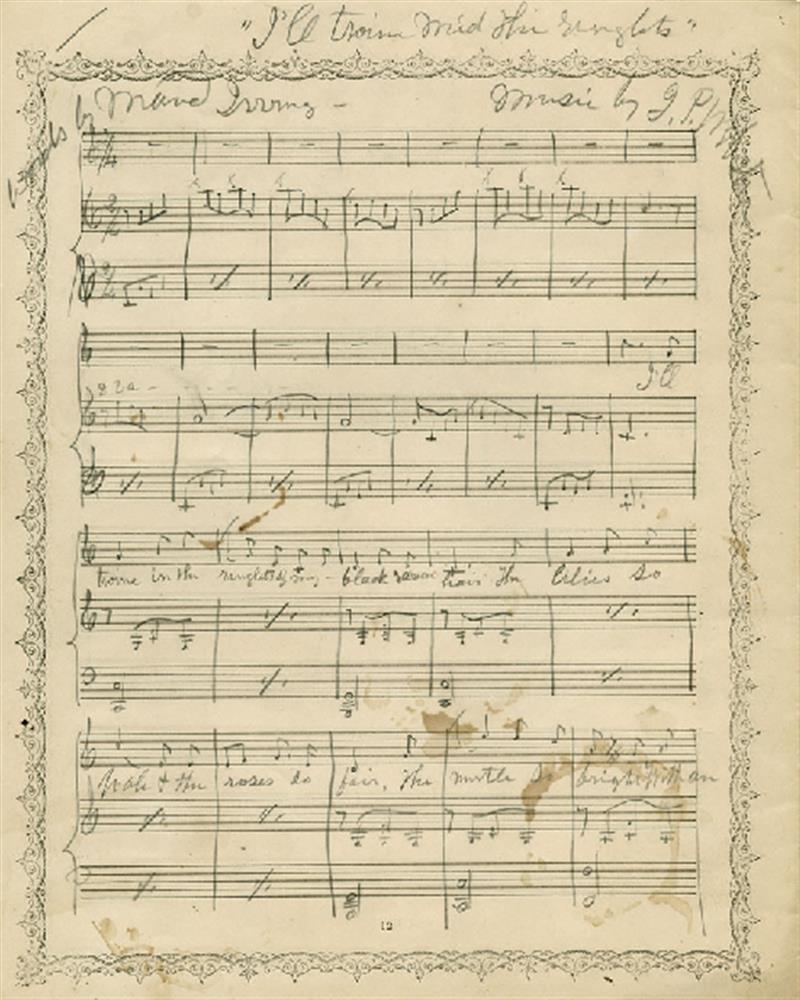 "I'll twine mid the ringlets"
Words by Maud Irving - Music by J. P.
8va -
I'll
twine in the ringlets of my - black raven hair The lilies so
pale & the roses so fair, The myrtle so bright with an
12